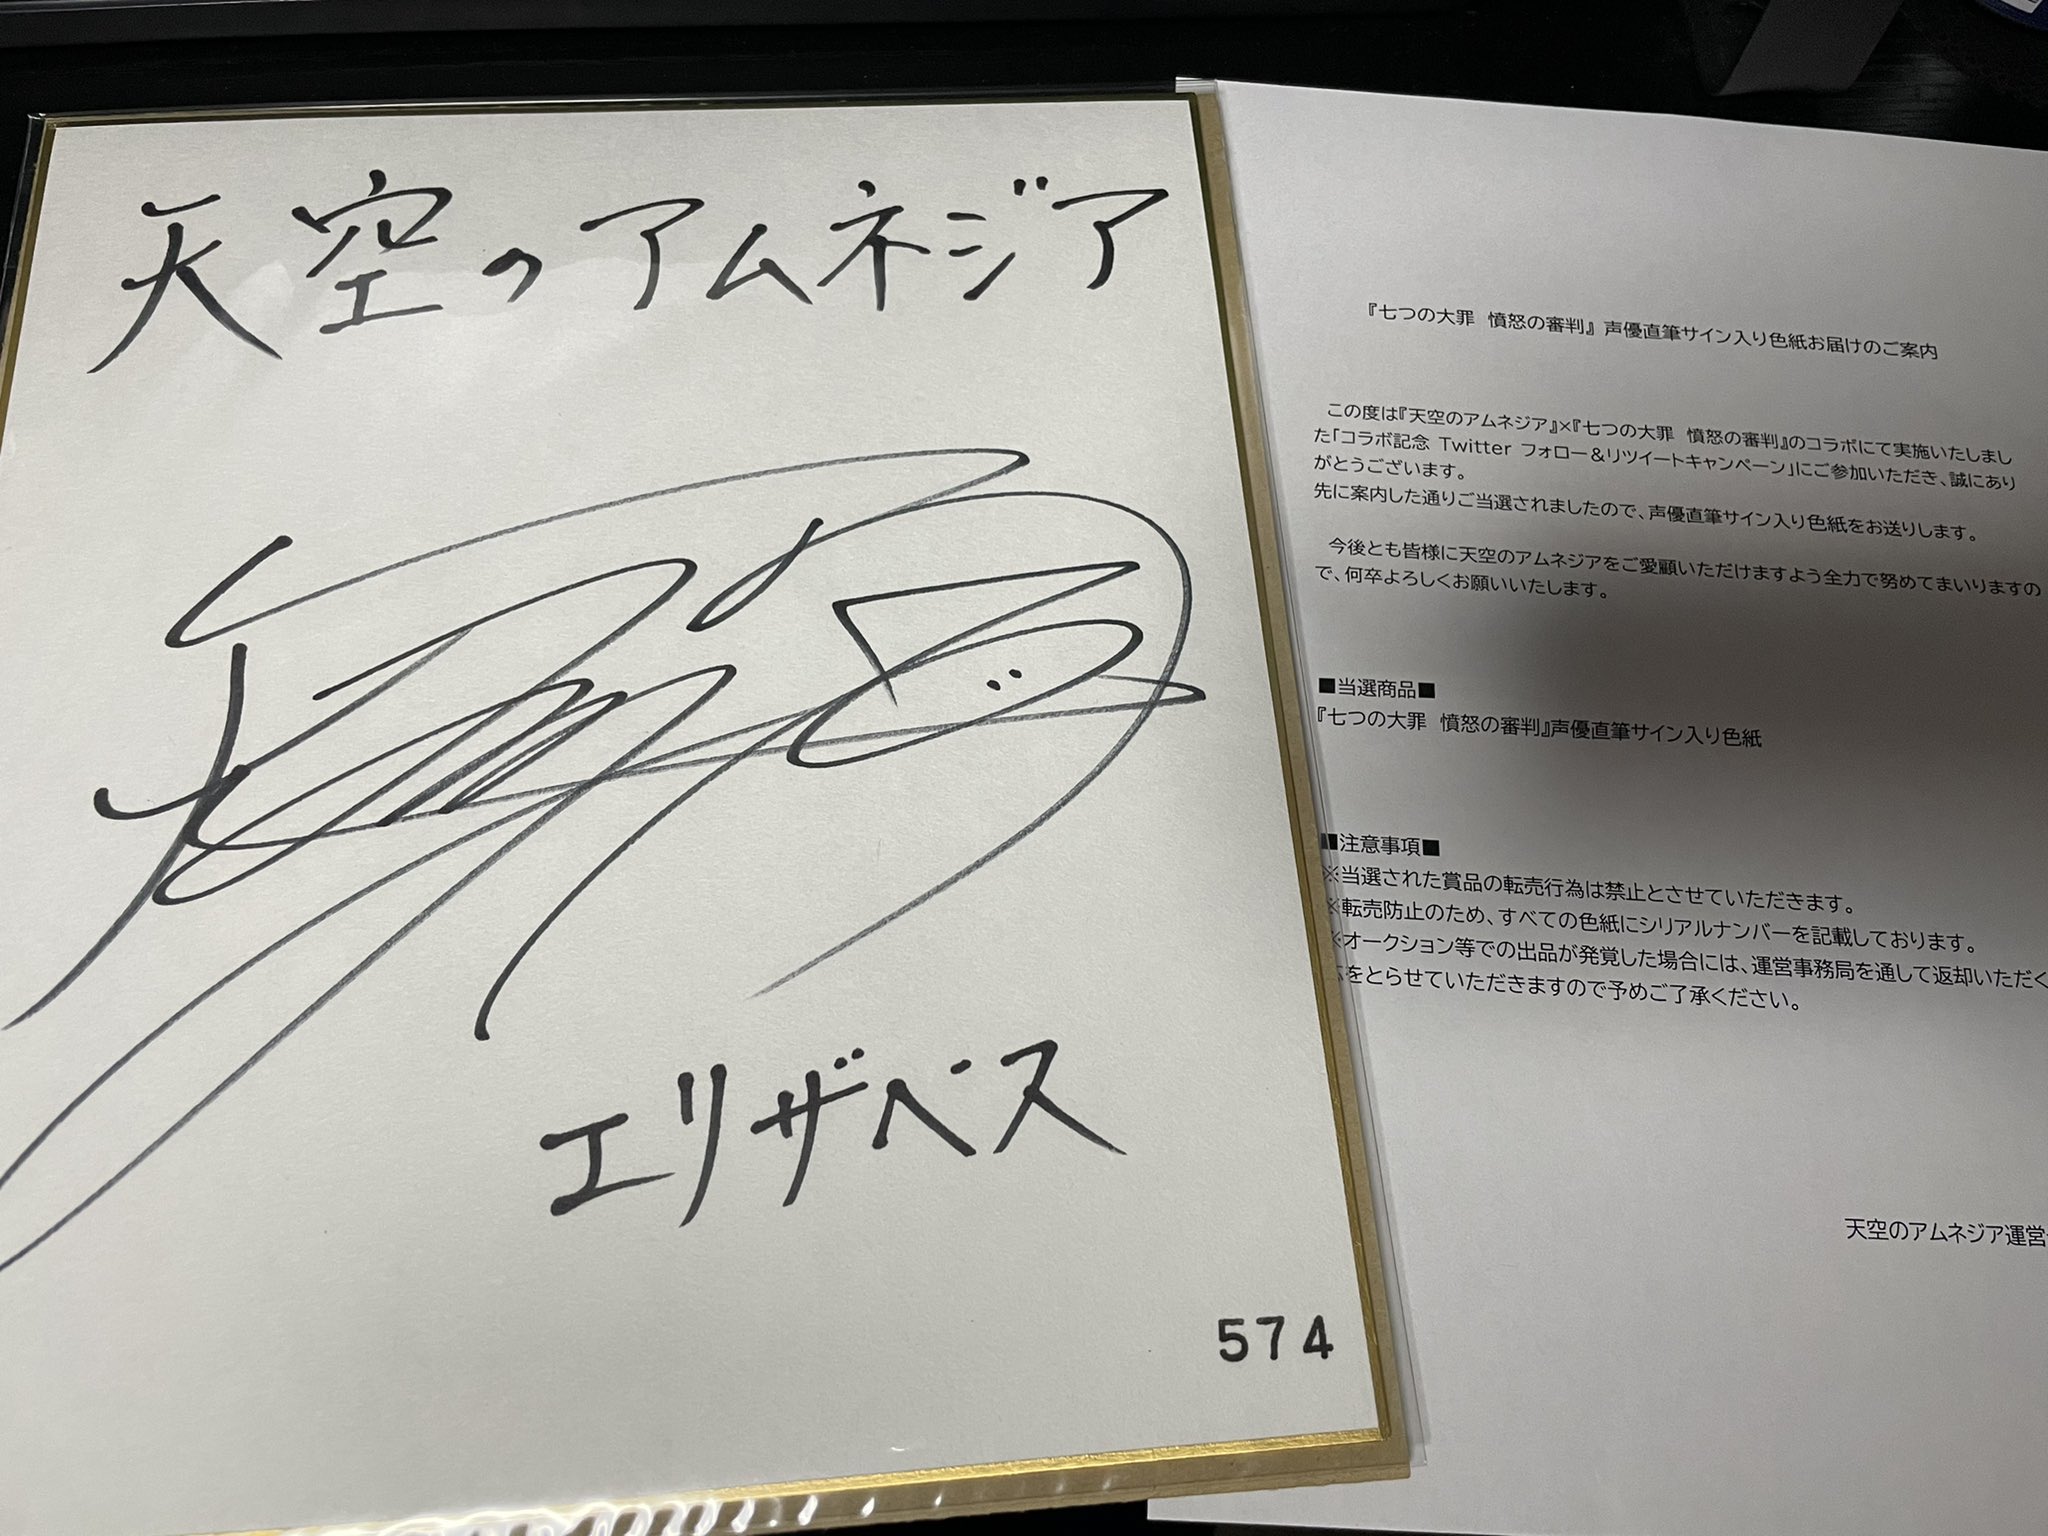 天空のアムネジア
エリザベス
574
『七つの大罪 憤怒の審判』声優直筆サイン入り色紙お届けのご案内
この度は『天空のアムネジア』×『七つの大罪 憤怒の審判』のコラボにて実施いたしまし
た「コラボ記念 Twitter フォロー＆リツイートキャンペーン」にご参加いただき、誠にあり
がとうございます。
先に案内した通りご当選されましたので、声優直筆サイン入り色紙をお送りします。
今後とも皆様に天空のアムネジアをご愛顧いただけますよう全力で努めてまいりますの
で、何卒よろしくお願いいたします。
■当選商品■
『七つの大罪 憤怒の審判』声優直筆サイン入り色紙
■注意事項■
※当選された賞品の転売行為は禁止とさせていただきます。
※転売防止のため、すべての色紙にシリアルナンバーを記載しております。
※オークション等での出品が発覚した場合には、運営事務局を通して返却いただく
をとらせていただきますので予めご了承ください。
天空のアムネジア運営